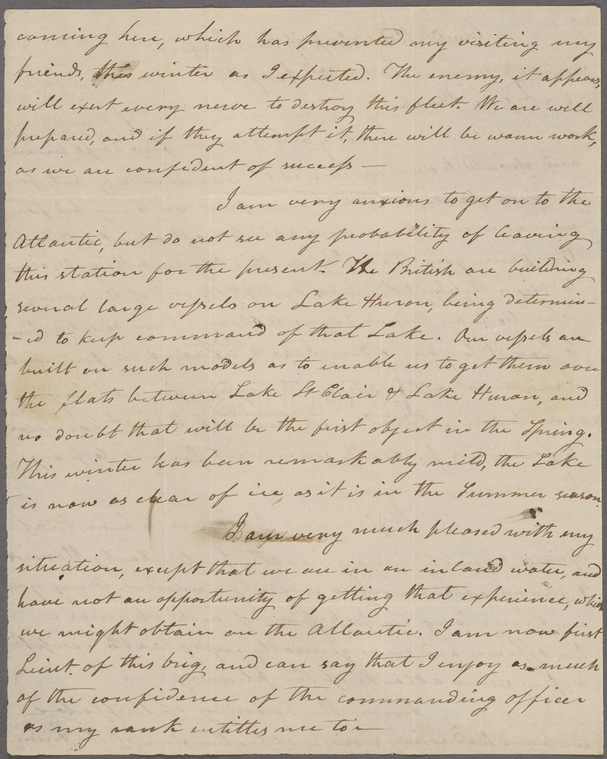 coming here, which has prevented my visiting my
friends, this winter as I expected. The enemy, it appears,
will exert every nerve to destroy this fleet. We are well
prepared, and if they attempt it, there will be warm work,
as we are confident of success —
I am very anxious to get on to the
Atlantic, but do not see any probability of leaving
this station for the present. The British are building
several large vessels on Lake Huron, being determin-
-ed to keep command of that Lake. Our vessels are
built on such models as to enable us to get them over
the flats between Lake St Clair & Lake Huron, and
no doubt that will be the first object in the Spring.
This winter has been remarkably mild, the Lake
is now as clear of ice, as it is in the Summer season.
I am very much pleased with my
situation, except that we are in an inland water, and
have not an opportunity of getting that experience, which
we might obtain on the Atlantic. I am now first
Lieut. of this brig, and can say that I enjoy as much
of the confidence of the commanding officer
as my rank entitles me to —